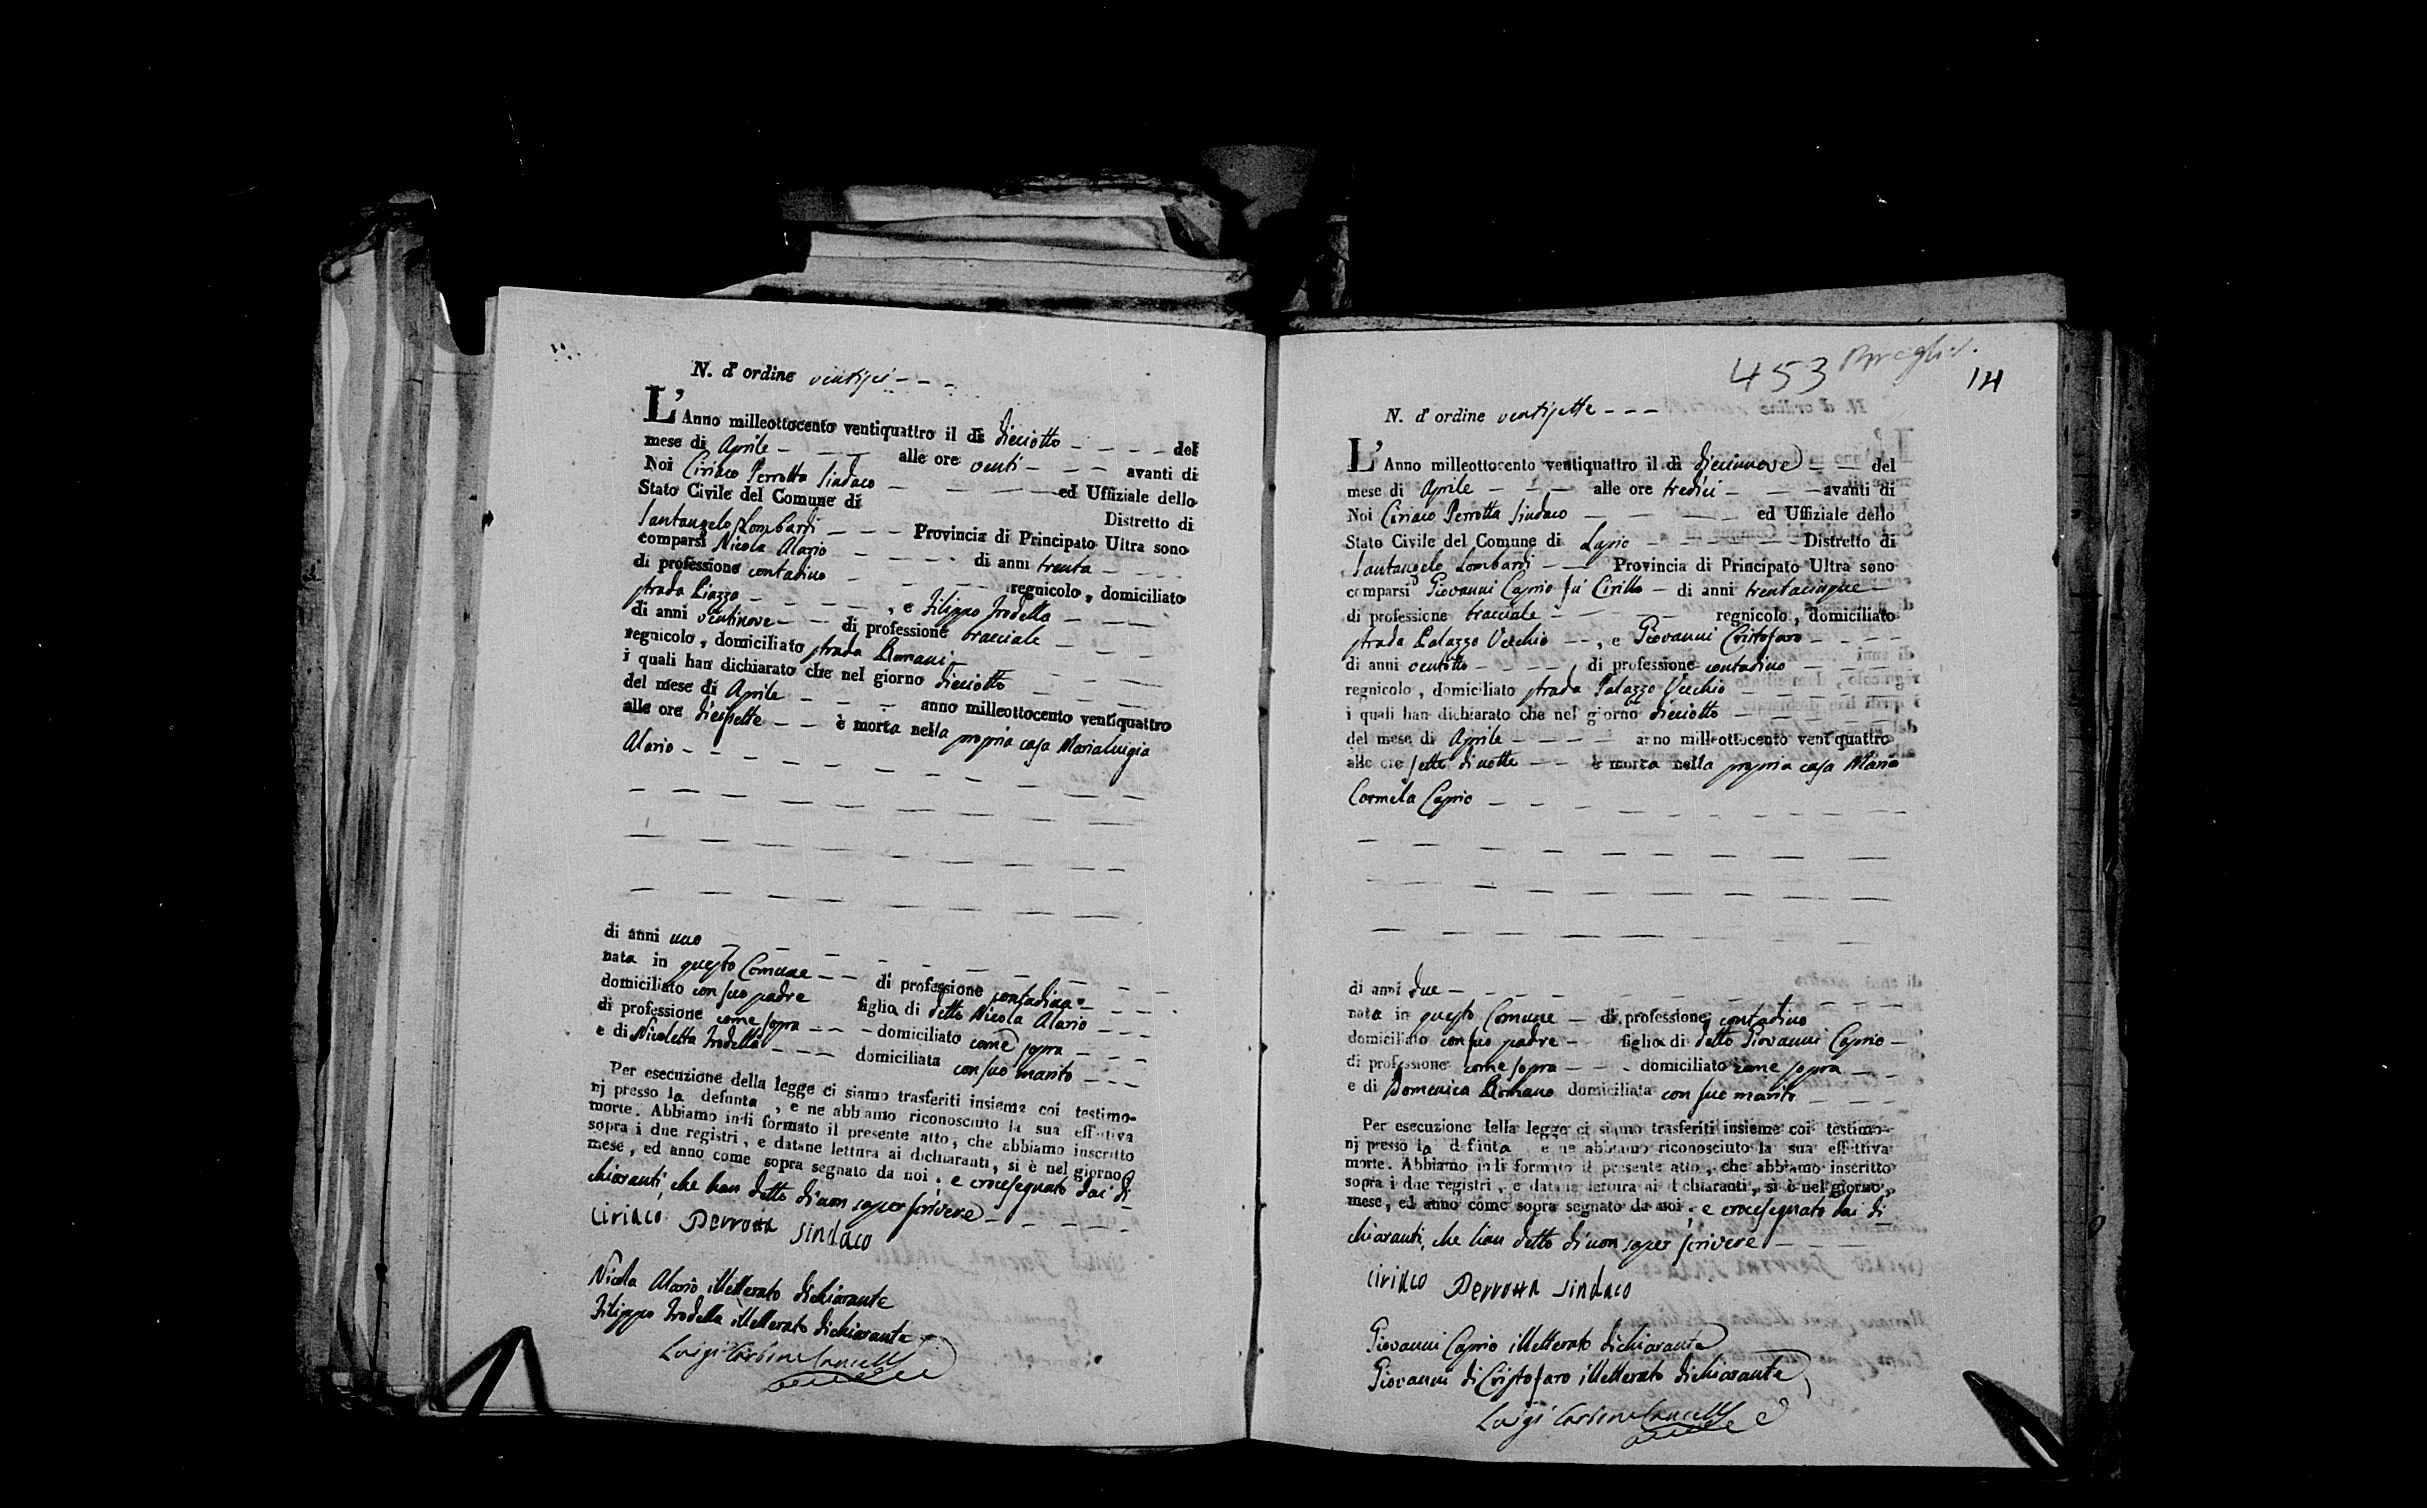 N. d'ordine ventisei
L'Anno milleottocento ventiquattro il dì dieciotto del
mese di Aprile alle ore venti avanti di
Noi Ciriaco Perrotta Sindaco ed Uffiziale dello
Stato Civile del Comune di Distretto di
Santangelo Lombardi Provincia di Principato Ultra sono
comparsi Nicola Alario di anni trenta
di professione contadino regnicolo, domiciliato
strada Piazza, e Filippo Trodella
di anni ventinove di professione bracciale
regnicolo, domiciliato strada Romani
i quali han dichiarato che nel giorno dieciotto
del mese di Aprile anno milleottocento ventiquattro
alle ore diecisette è morta nella propria casa Marialuigia
Alario
di anni uno
nata in questo Comune di professione contadina
domiciliato con suo padre figlia di detto Nicola Alario
di professione come sopra domiciliato come sopra
e di Nicoletta Trodella domiciliata con suo marito
Per esecuzione della legge ci siamo trasferiti insieme coi testimo-
nj presso la defunta, e ne abbiamo riconosciuto la sua effettiva
morte. Abbiamo indi formato il presente atto, che abbiamo inscritto
sopra i due registri, e datane lettura ai dichiaranti, si è nel giorno,
mese, ed anno come sopra segnato da noi, e crocesegnato dai di
chiaranti, che han detto di non saper scrivere
Ciriaco Perrotta Sindaco
Nicola Alario illetterato dichiarante
Filippo Trodella illetterato dichiarante
Luigi
453
14
N. d'ordine ventisette
L'Anno milleottocento ventiquattro il dì diecinnove del
mese di Aprile alle ore tredici avanti di
Noi Ciriaco Perrotta Sindaco ed Uffiziale dello
Stato Civile del Comune di Lapio Distretto di
Santangelo Lombardi Provincia di Principato Ultra sono
comparsi Giovanni Caprio fu Cirillo di anni trentacinque
di professione bracciale regnicolo, domiciliato
strada Palazzo Vecchio, e Giovanni Cristofaro
di anni ventotto di professione contadino
regnicolo, domiciliato strada Palazzo Vecchio
i quali han dichiarato che nel giorno dieciotto
del mese di Aprile anno milleottocento ventiquattro
alle ore sette di notte è morta nella propria casa Maria
Carmela Caprio
di anni due
nata in questo Comune di professione contadina
domiciliato con suo padre figlia di detto Giovanni Caprio
di professione come sopra domiciliato come sopra
e di Domenica Romano domiciliata con suo marito
Per esecuzione della legge ci siamo trasferiti insieme coi testimo-
nj presso la defunta e ne abbiamo riconosciuto la sua effettiva
morte. Abbiamo indi formato il presente atto, che abbiamo inscritto
sopra i due registri, e datane lettura ai dichiaranti, si è nel giorno,
mese, ed anno come sopra segnato da noi, e crocesegnato dai di
chiaranti, che han detto di non saper scrivere
Ciriaco Perrotta Sindaco
Giovanni Caprio illetterato dichiarante
Giovanni di Cristofaro illetterato dichiarante
Luigi